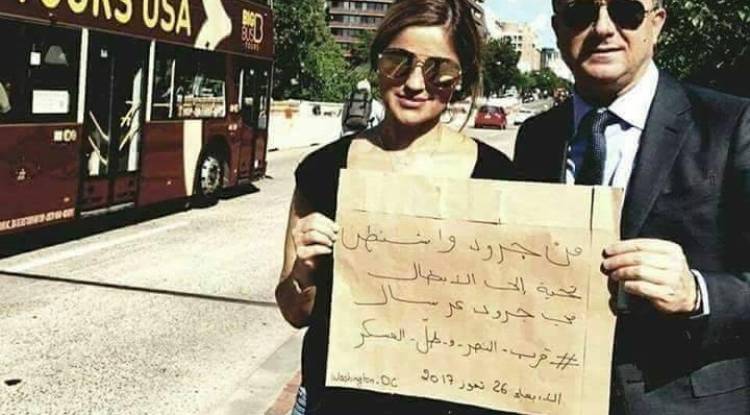 TOURS USA
BIG BUS TOURS
من جرود واشنطن
تحية إلى الابطال
في جرود عرسال
# قرب_النصر_وطلّ_العسكر
الاربعاء 26 تموز 2017
Washington.DC